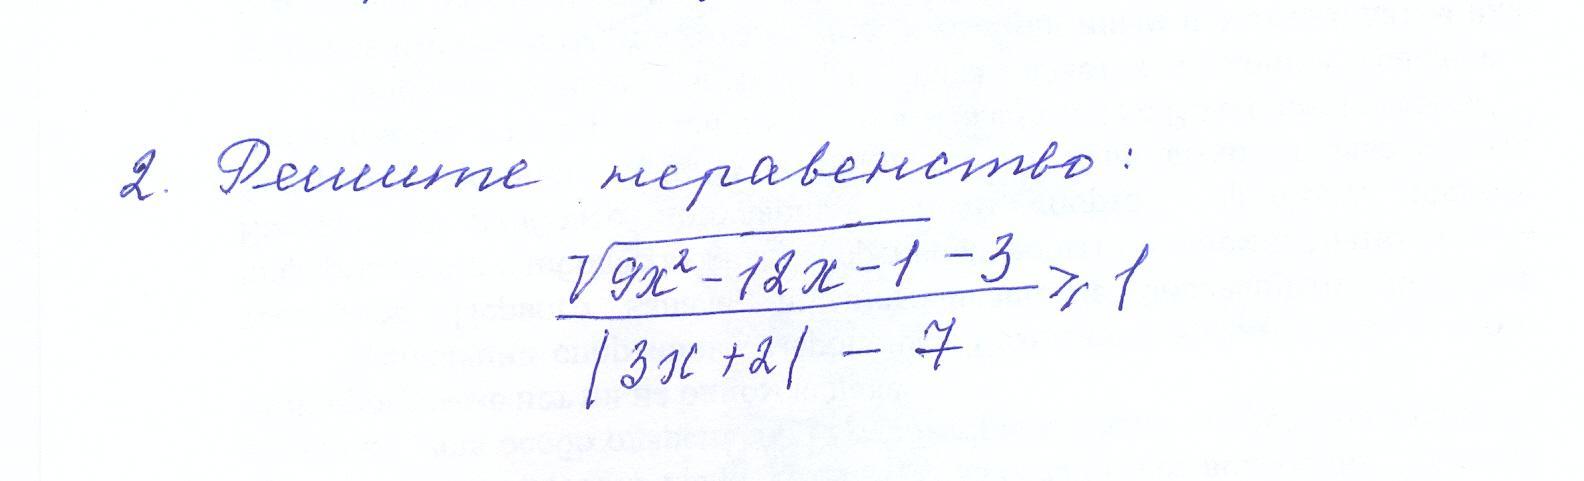 2. Решите неравенство:
√(9x² - 12x - 1) - 3 / |3x + 2| - 7 ⩾ 1